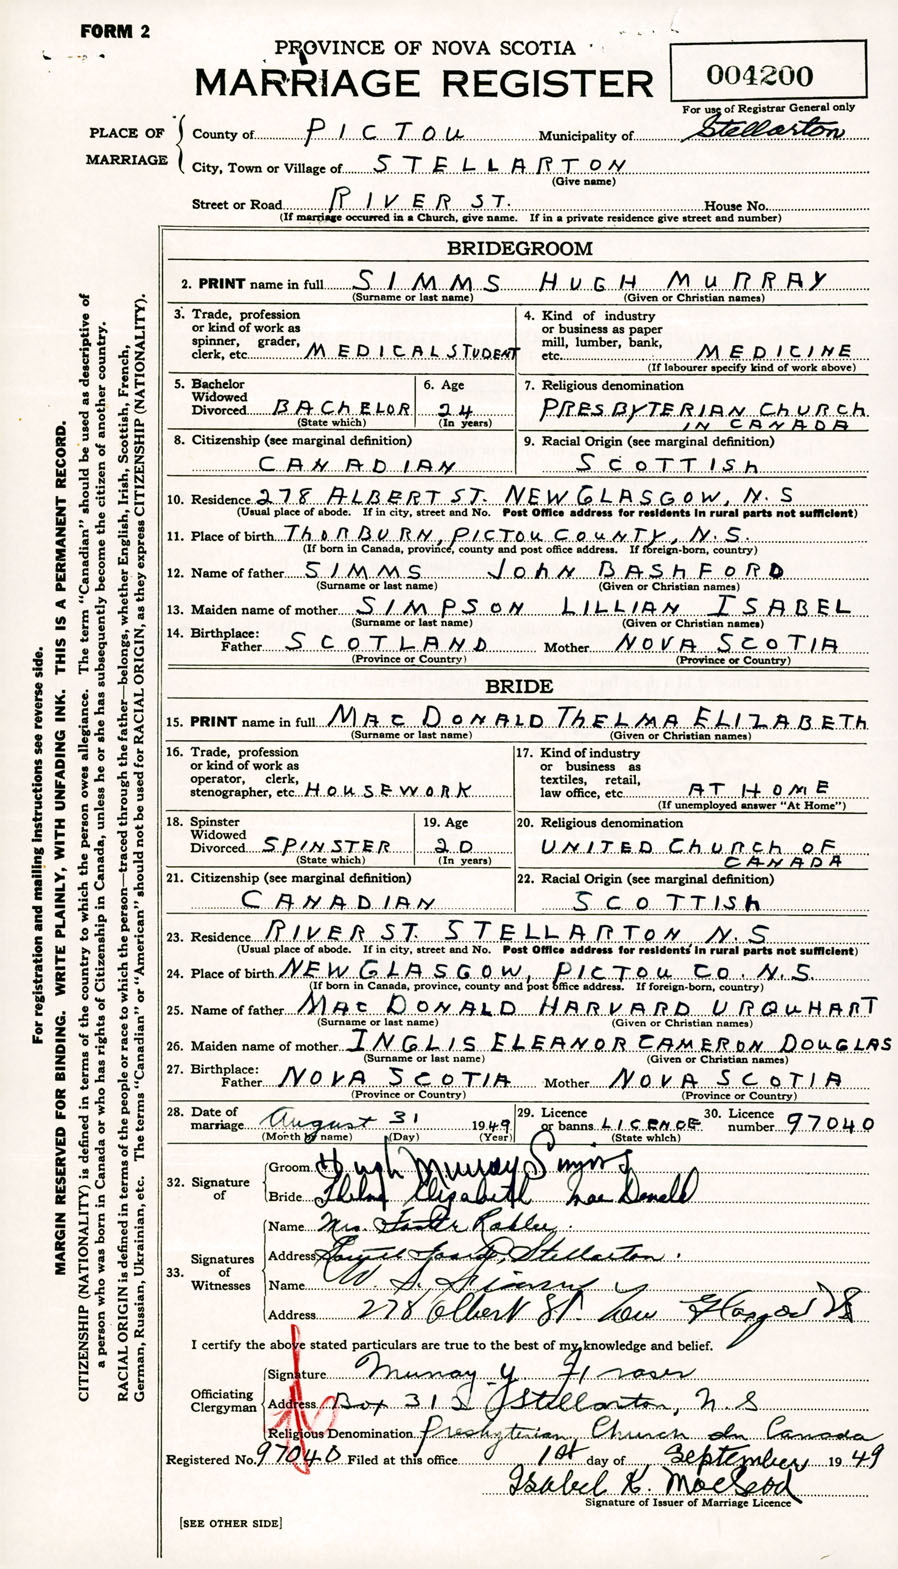 FORM 2
PROVINCE OF NOVA SCOTIA
MARRIAGE REGISTER
004200
For use of Registrar General only
PLACE OF MARRIAGE
County of PICTOU Municipality of Stellarton
City, Town or Village of STELLARTON
(Give name)
Street or Road RIVER ST. House No.
(If marriage occurred in a Church, give name. If in a private residence give street and number)
BRIDEGROOM
2. PRINT name in full SIMMS HUGH MURRAY
(Surname or last name) (Given or Christian names)
3. Trade, profession or kind of work as spinner, grader, clerk, etc. MEDICAL STUDENT
4. Kind of industry or business as paper mill, lumber, bank, etc. MEDICINE
(If labourer specify kind of work above)
5. Bachelor Widowed Divorced BAChELOR
(State which)
6. Age 24
(In years)
7. Religious denomination
PRESBYTERIAN ChURCh IN CANADA
8. Citizenship (see marginal definition)
CANADIAN
9. Racial Origin (see marginal definition)
SCOTTISh
10. Residence 278 ALBERT ST. NEW GLASGOW, N.S
(Usual place of abode. If in city, street and No. Post Office address for residents in rural parts not sufficient)
11. Place of birth ThORBURN, PICTOU COUNTY, N.S.
(If born in Canada, province, county and post office address. If foreign-born, country)
12. Name of father SIMMS JOhN BAShFORD
(Surname or last name) (Given or Christian names)
13. Maiden name of mother SIMPSON LILLIAN ISABEL
(Surname or last name) (Given or Christian names)
14. Birthplace: Father SCOTLAND Mother NOVA SCOTIA
(Province or Country) (Province or Country)
BRIDE
15. PRINT name in full MAC DONALD ThELMA ELIZABETh
(Surname or last name) (Given or Christian names)
16. Trade, profession or kind of work as operator, clerk, stenographer, etc. HOUSEWORK
17. Kind of industry or business as textiles, retail, law office, etc. AT HOME
(If unemployed answer "At Home")
18. Spinster Widowed Divorced SPINSTER
(State which)
19. Age 20
(In years)
20. Religious denomination
UNITED ChURCh OF CANADA
21. Citizenship (see marginal definition)
CANADIAN
22. Racial Origin (see marginal definition)
SCOTTISh
23. Residence RIVER ST. STELLARTON N.S
(Usual place of abode. If in city, street and No. Post Office address for residents in rural parts not sufficient)
24. Place of birth NEW GLASGOW, PICTOU CO. N.S.
(If born in Canada, province, county and post office address. If foreign-born, country)
25. Name of father MAC DONALD HARVARD URQUHART
(Surname or last name) (Given or Christian names)
26. Maiden name of mother INGLIS ELEANOR CAMERON DOUGLAS
(Surname or last name) (Given or Christian names)
27. Birthplace: Father NOVA SCOTIA Mother NOVA SCOTIA
(Province or Country) (Province or Country)
28. Date of marriage August 31 1949
(Month by name) (Day) (Year)
29. Licence or banns LICENCE
(State which)
30. Licence number 97040
32. Signature of
Groom Hugh Murray Simms
Bride Thelma Elizabeth MacDonald
33. Signatures of Witnesses
Name Mrs.
Address Stellarton.
Name W. S.
Address 278 Albert St. New Glasgow NS
I certify the above stated particulars are true to the best of my knowledge and belief.
Officiating Clergyman
Signature Murray Y Fraser
Address Box 312 Stellarton, N.S
Religious Denomination Presbyterian Church in Canada
Registered No. 97040 Filed at this office 1st day of September 1949
Isabel K. MacLeod
Signature of Issuer of Marriage Licence
[SEE OTHER SIDE]
For registration and mailing instructions see reverse side.
MARGIN RESERVED FOR BINDING. WRITE PLAINLY, WITH UNFADING INK. THIS IS A PERMANENT RECORD.
CITIZENSHIP (NATIONALITY) is defined in terms of the country to which the person owes allegiance. The term "Canadian" should be used as descriptive of
a person who was born in Canada or who has rights of Citizenship in Canada, unless he or she has subsequently become the citizen of another country.
RACIAL ORIGIN is defined in terms of the people or race to which the person—traced through the father—belongs, whether English, Irish, Scottish, French,
German, Russian, Ukrainian, etc. The terms "Canadian" or "American" should not be used for RACIAL ORIGIN, as they express CITIZENSHIP (NATIONALITY).